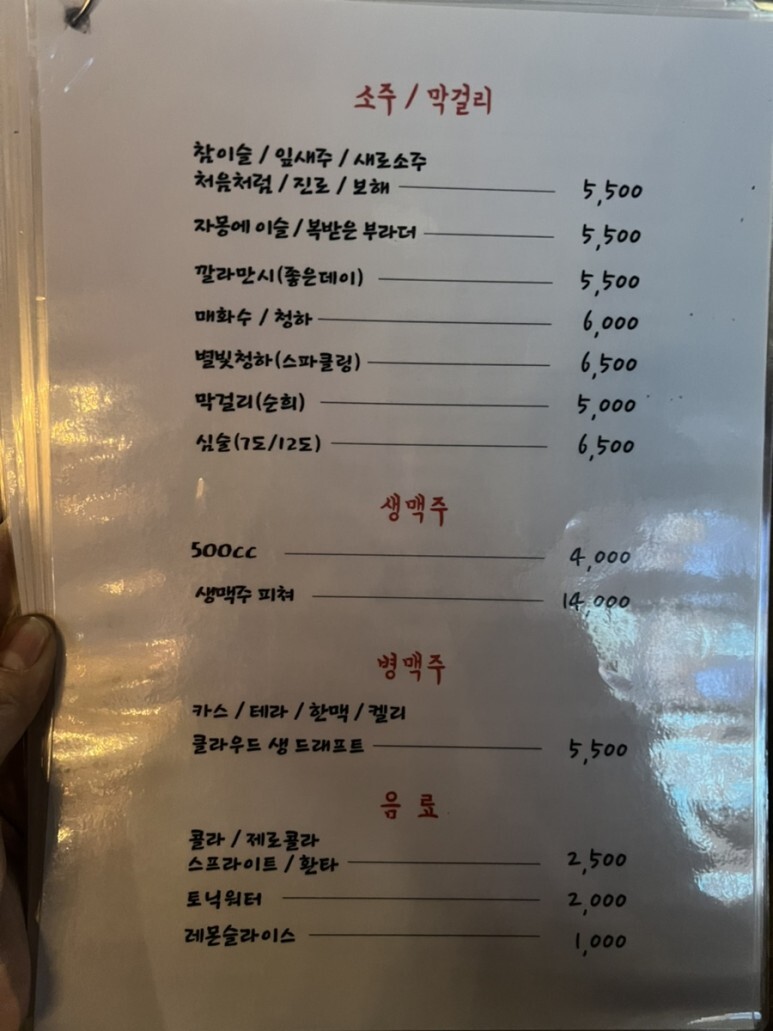 소주 / 막걸리
참이슬 / 잎새주 / 새로소주
처음처럼 / 진로 / 보해 5,500
자몽에 이슬 / 복받은 부라더 5,500
깔라만시(좋은데이) 5,500
매화수 / 청하 6,000
별빛청하(스파클링) 6,500
막걸리(순희) 5,000
심술(7도/12도) 6,500
생맥주
500cc 4,000
생맥주 피쳐 14,000
병맥주
카스 / 테라 / 한맥 / 켈리
클라우드 생 드래프트 5,500
음 료
콜라 / 제로콜라
스프라이트 / 환타 2,500
토닉워터 2,000
레몬슬라이스 1,000